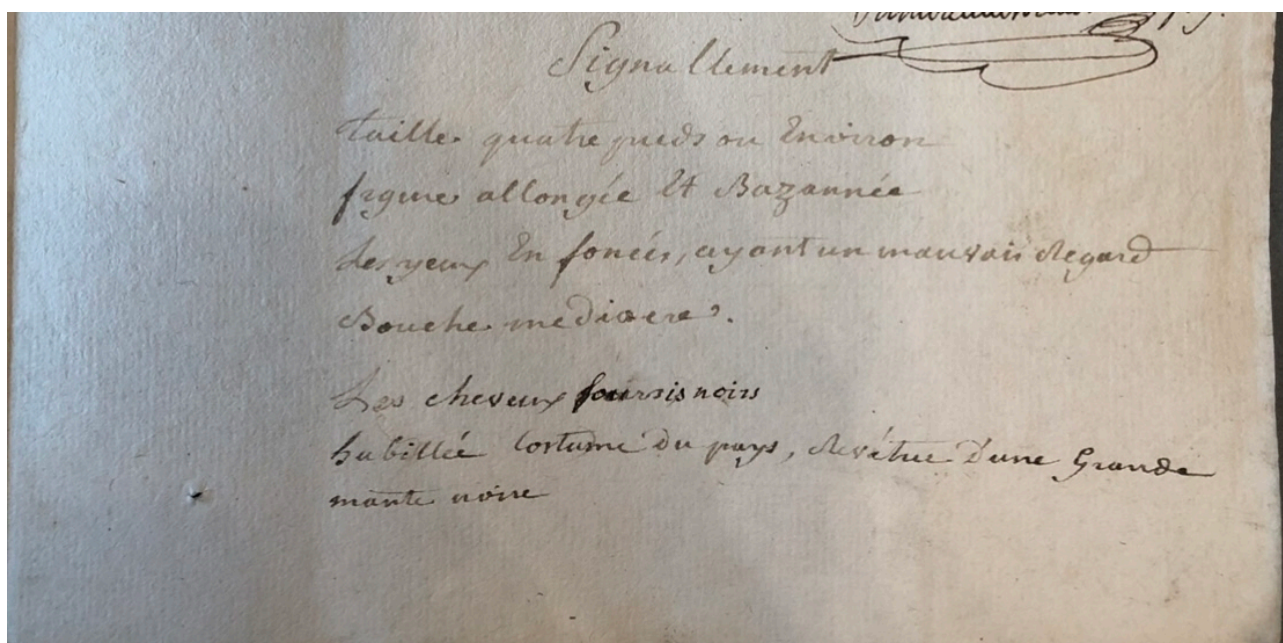 Signallement
taille quatre pieds ou Environ
figure allongée Et Bazannée
Les yeux En foncés, ayant un mauvais Regard
Bouche mediocre.
Les cheveux fournis noirs
habillée Costume du pays, Revétue D'une Grande
mante noire